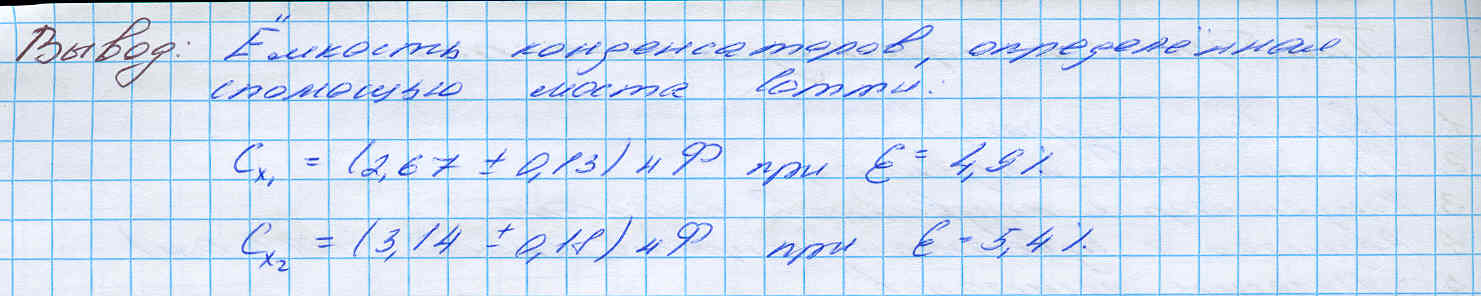 Вывод: Ёмкость конденсаторов, определённая
с помощью моста Сотти:
Cx₁ = (2,67 ± 0,13) нФ при ε = 4,9%.
Cx₂ = (3,14 ± 0,18) нФ при ε = 5,4%.